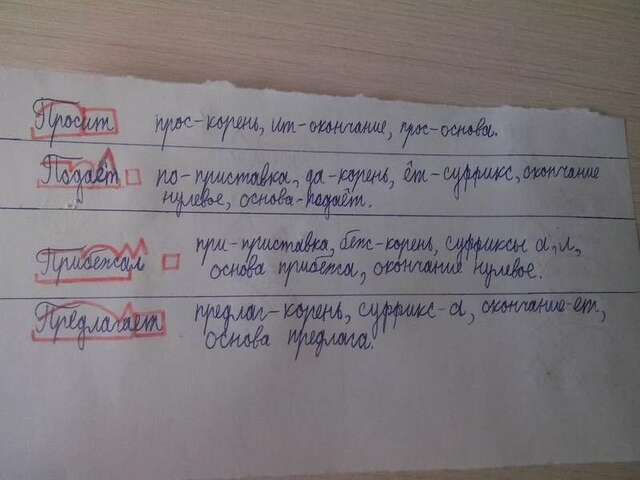 Просит прос-корень, ит-окончание, прос-основа.
Подаёт по-приставка, да-корень, ёт-суррикс, окончание
нулевое, основа-подаёт.
Прибежал при-приставка, беж-корень, сурриксы а, л,
основа прибежа, окончание нулевое.
Предлагает предлаг-корень, суррикс-а, окончание-ет,
основа предлага.